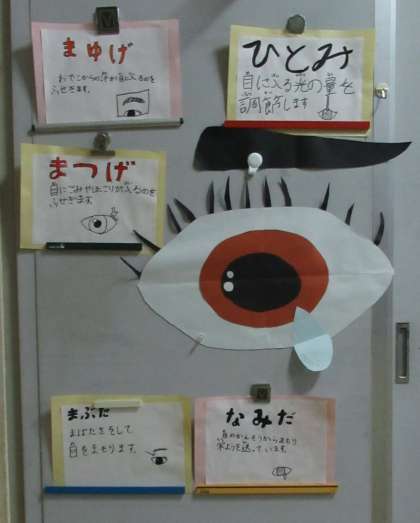 まゆげ
おでこからの汗が目に入るのを
ふせぎます。
ひとみ
目に入る光の量を
調節します
まつげ
目にごみやほこりが入るのを
ふせぎます。
まぶた
まばたきをして
目をまもります。
なみだ
目のかんそうからまもり
栄ようを送っています。